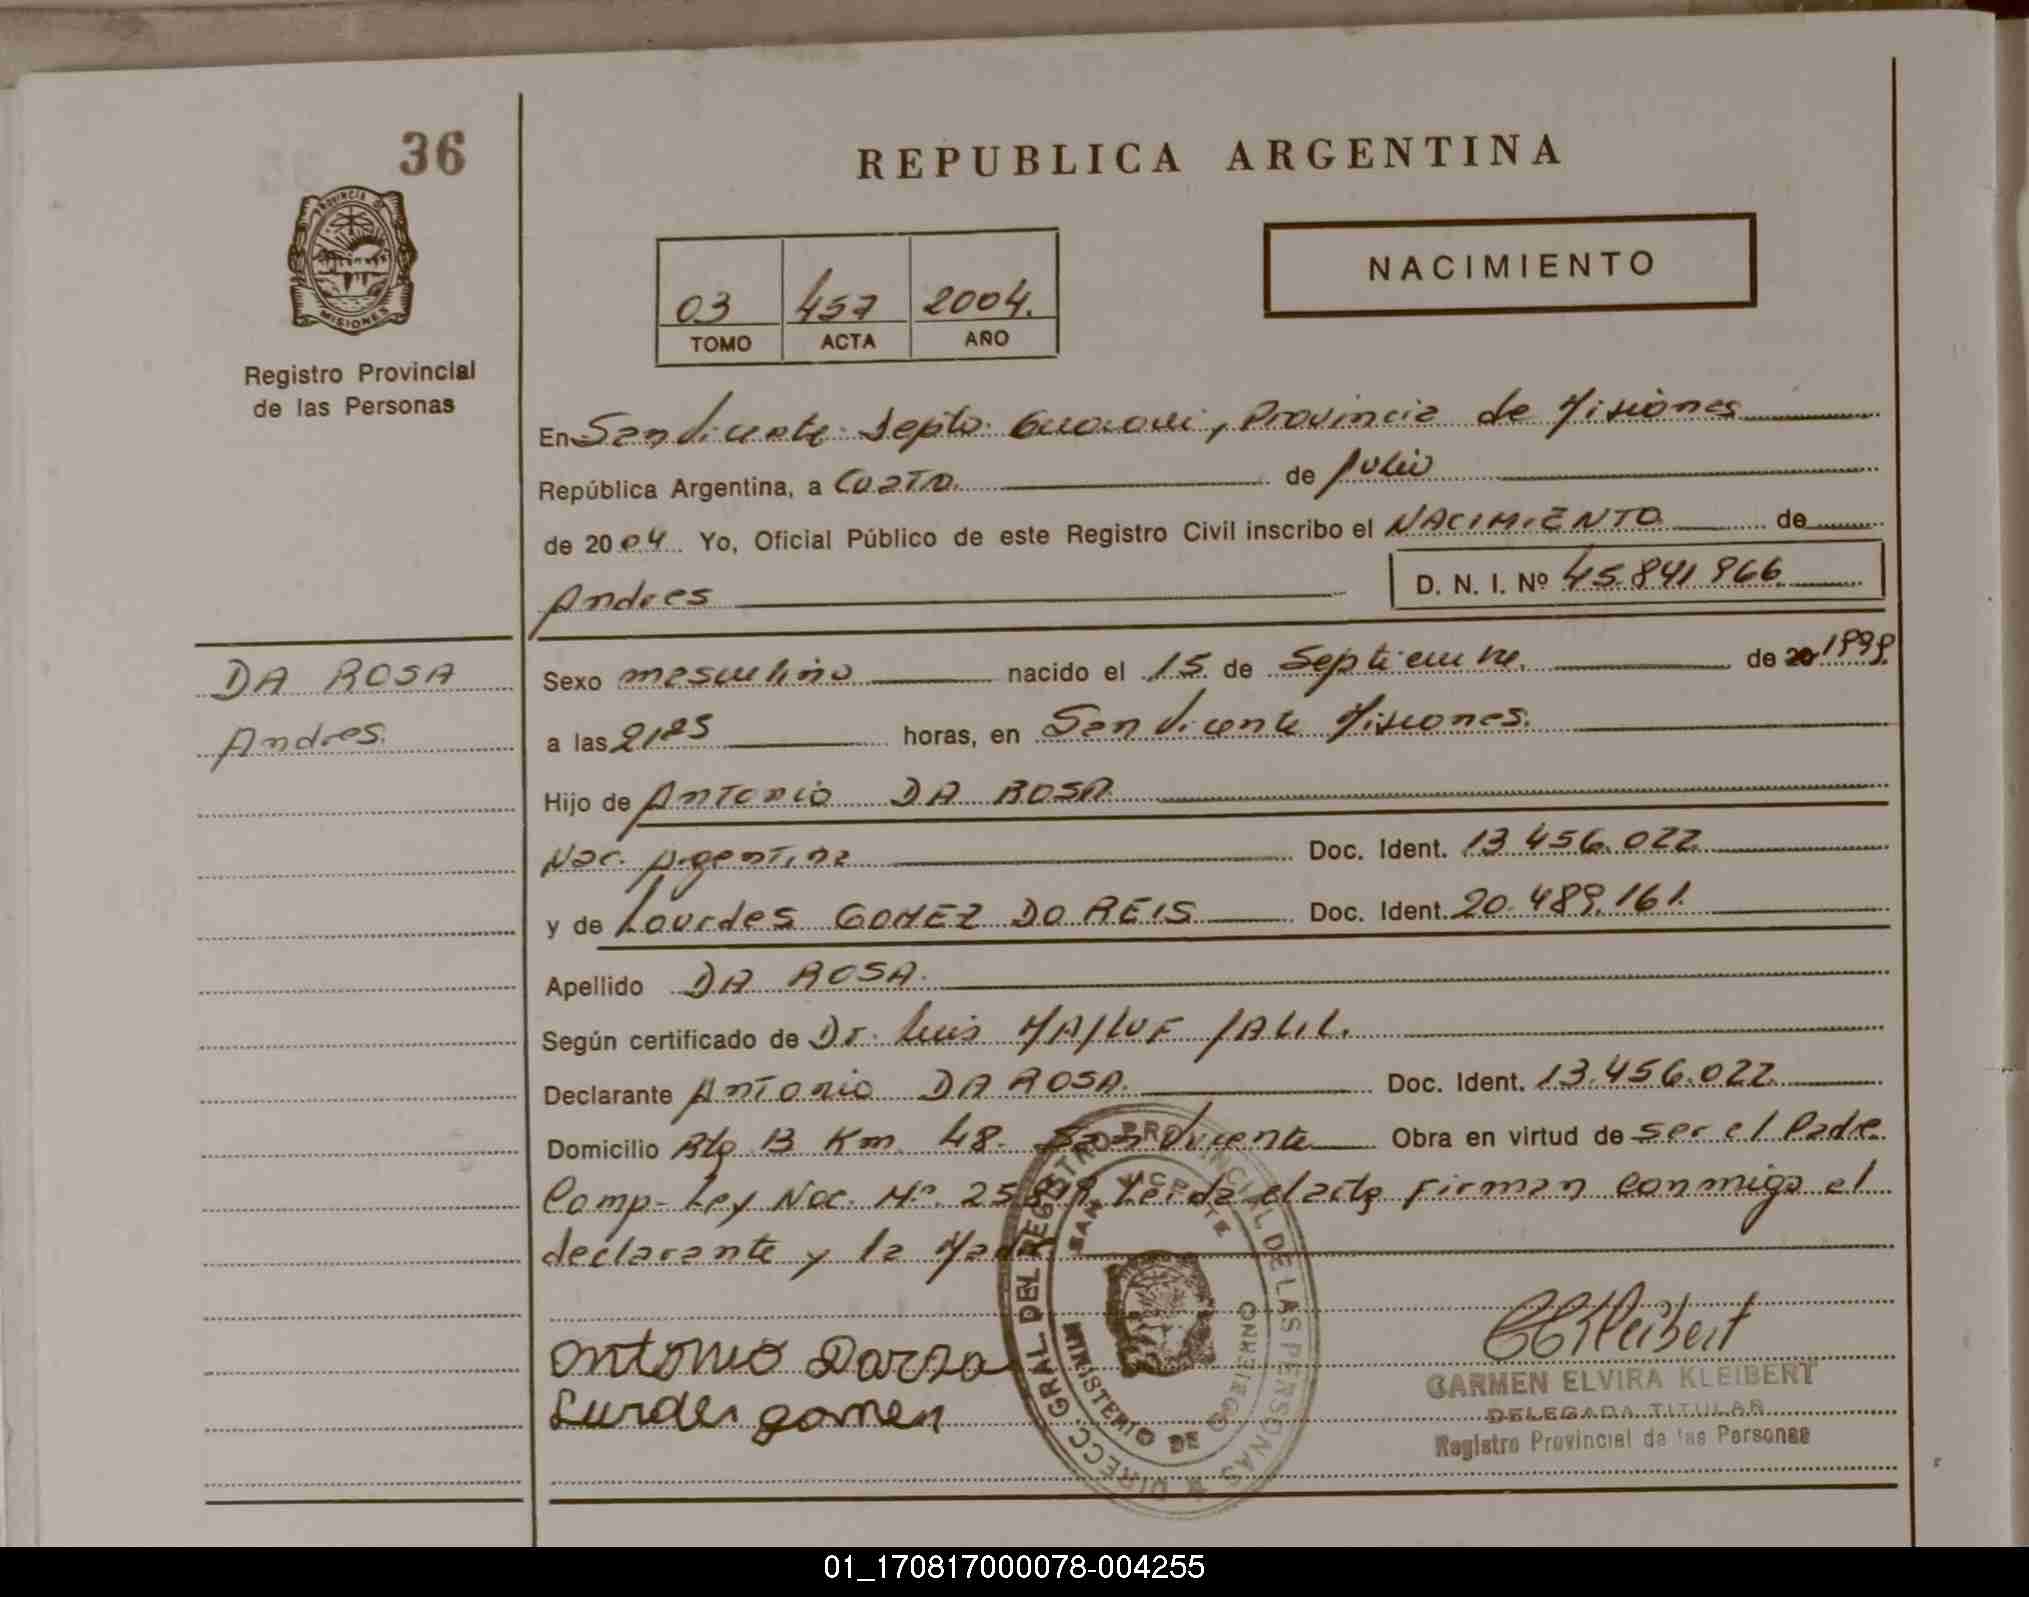 36
REPUBLICA ARGENTINA
PROVINCIA DE
MISIONES
Registro Provincial
de las Personas
NACIMIENTO
03 457 2004.
TOMO ACTA AÑO
En San Vicente Depto. Guarani, Provincia de Misiones
República Argentina, a Cuatro de Julio
de 2004 Yo, Oficial Público de este Registro Civil inscribo el NACIMIENTO de
Andres D. N. I. Nº 45.841.966
DA ROSA
Andres
Sexo masculino nacido el 15 de Septiembre de 20 1999
a las 21,25 horas, en San Vicente Misiones.
Hijo de Antonio DA ROSA
Nac. Argentina Doc. Ident. 13.456.022
y de Lourdes GOMEZ DO REIS Doc. Ident. 20.489.161.
Apellido DA ROSA.
Según certificado de Dr. Luis JALIL.
Declarante Antonio DA ROSA. Doc. Ident. 13.456.022
Domicilio Rta 13 Km 48. San Vicente Obra en virtud de ser el Padre
Comp- Ley Nac. Nº 25.819. Leida el acta firman conmigo el
declarante y la Madre
Antonio Darosa
Lurdes gomes
DIRECC. GRAL DEL REGISTRO PROVINCIAL DE LAS PERSONAS
SAN VICENTE
MINISTERIO DE GOBIERNO
CKleibert
CARMEN ELVIRA KLEIBERT
DELEGADA TITULAR
Registro Provincial de las Personas
01_170817000078-004255